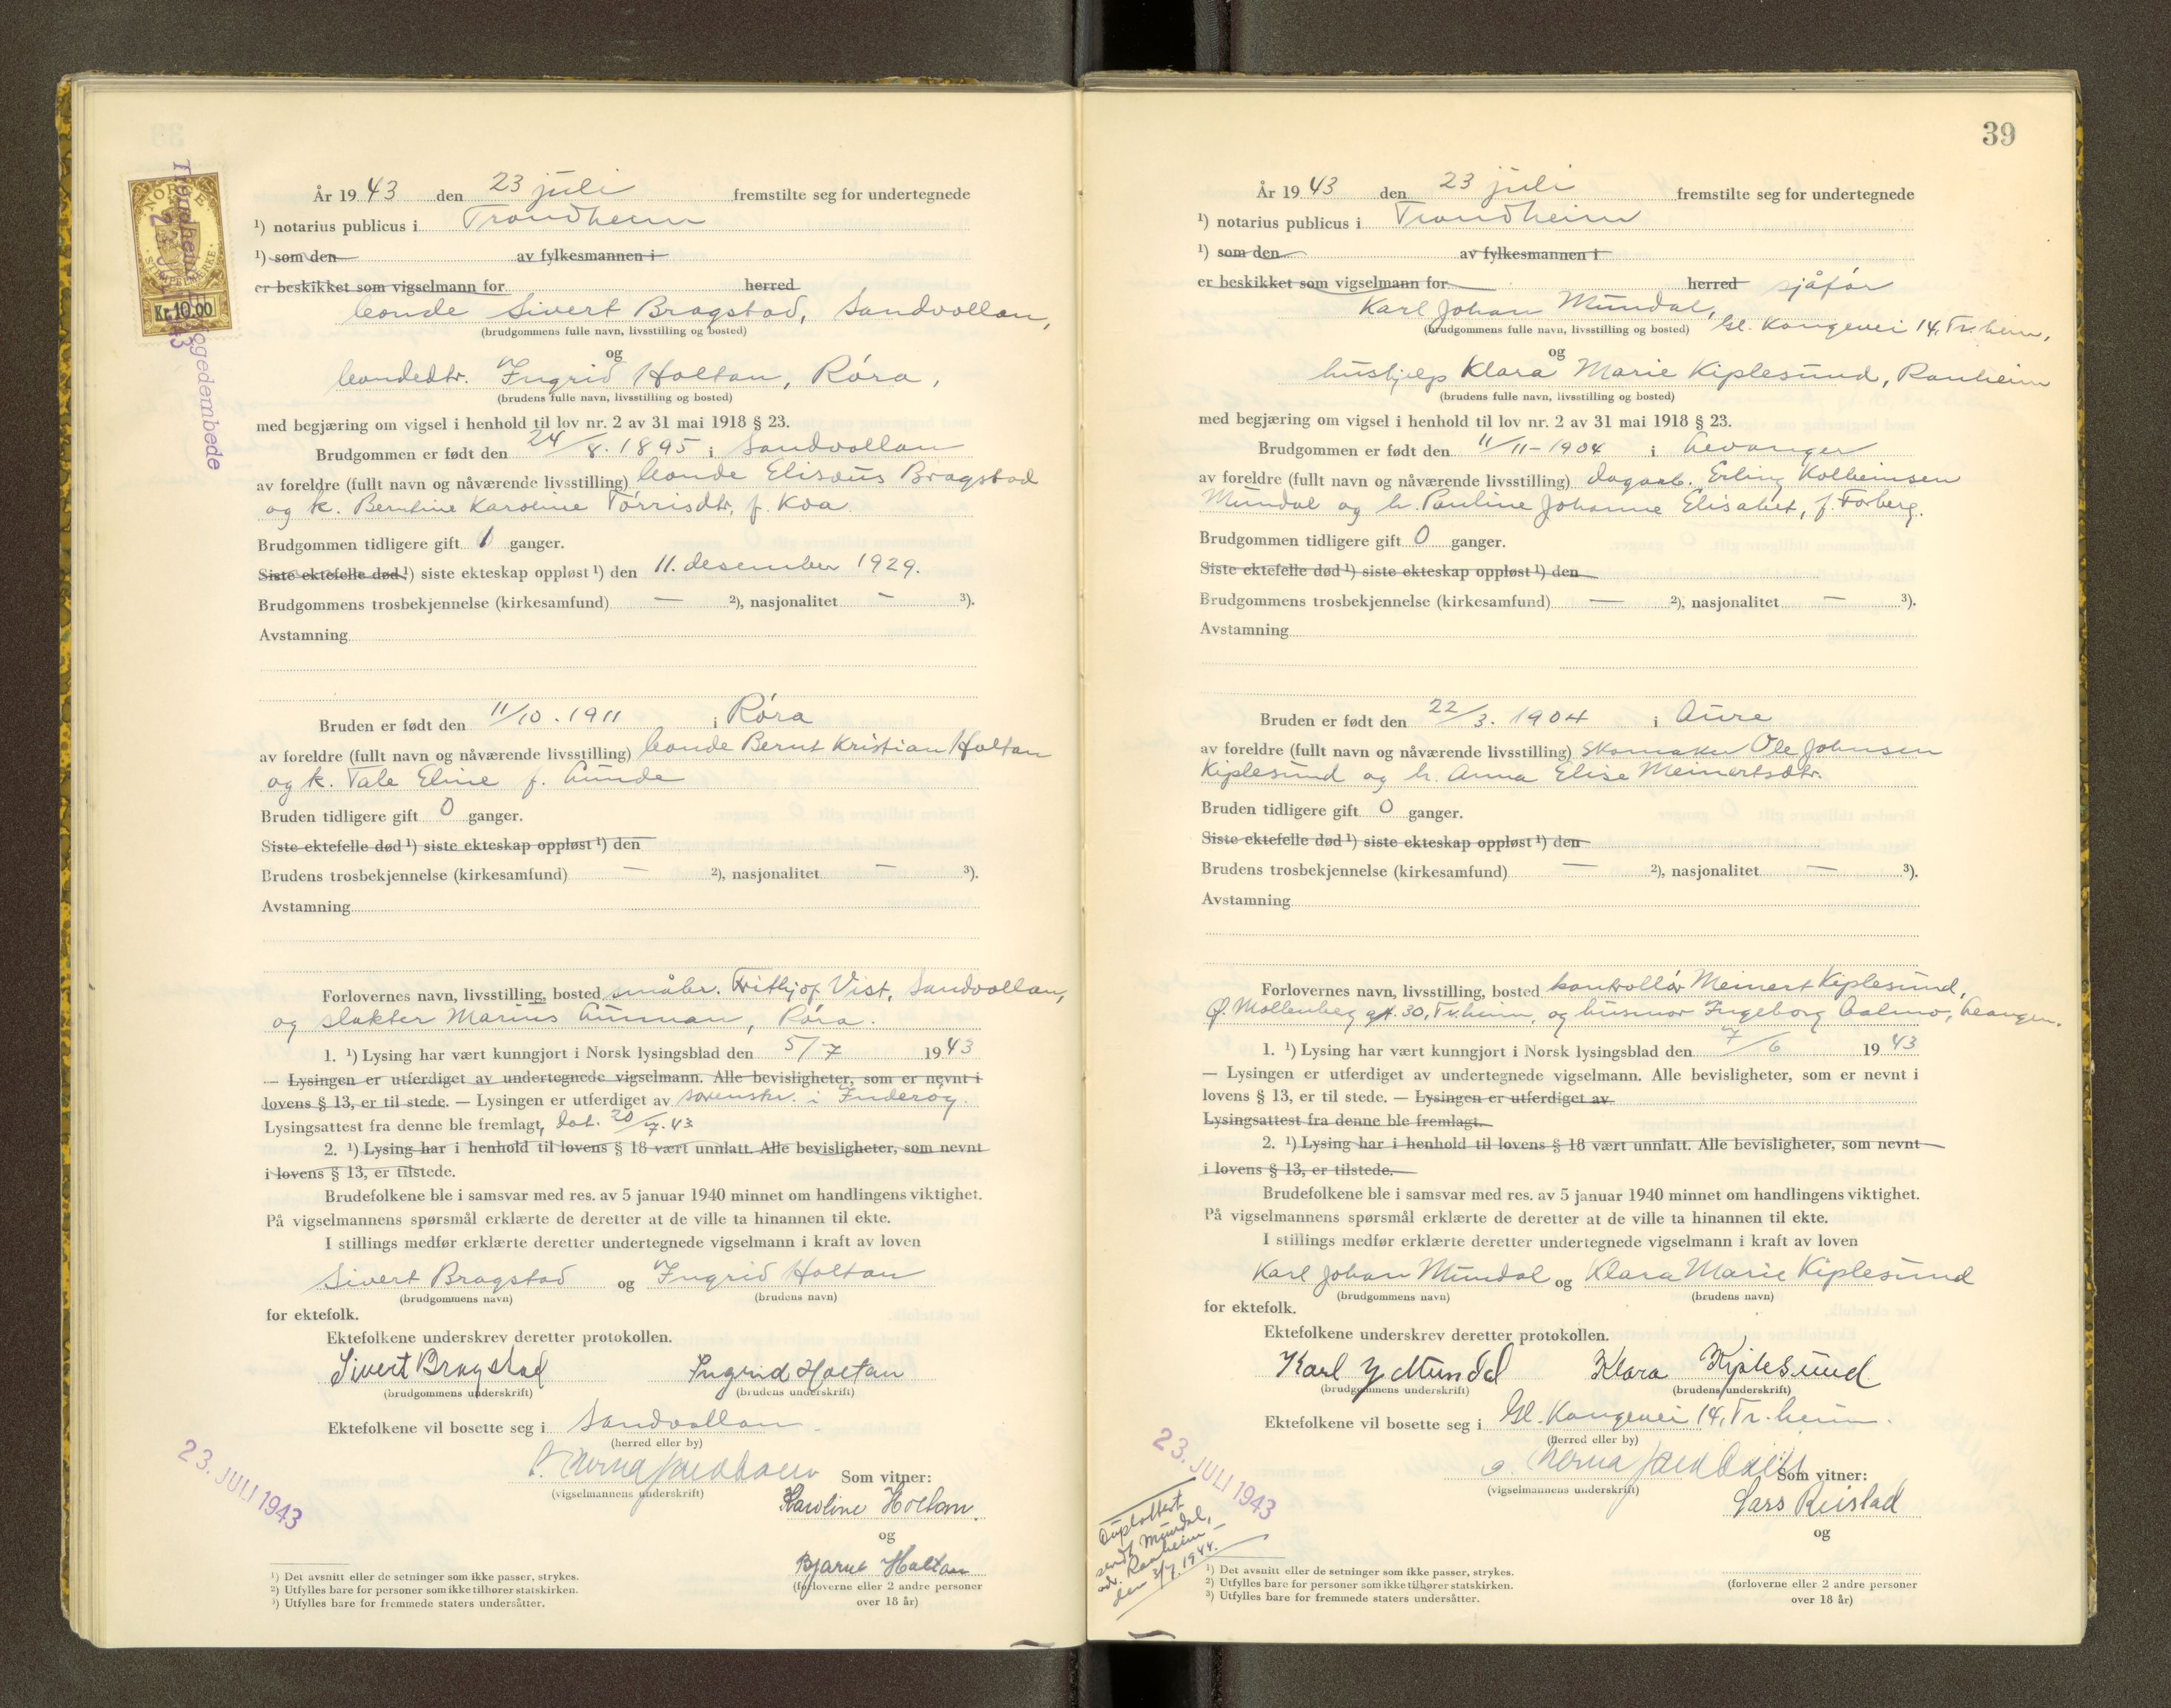 NORGE
STEMPELMERKE
Kr. 10.00
23 JULI 43
År 1943 den 23 juli fremstilte seg for undertegnede
¹) notarius publicus i Trondheim
¹) som den av fylkesmannen i
er beskikket som vigselmann for herred
bonde Sivert Bragstad, Sandvollan,
(brudgommens fulle navn, livsstilling og bosted)
og
bondedtr. Ingrid Holtan, Røra,
(brudens fulle navn, livsstilling og bosted)
med begjæring om vigsel i henhold til lov nr. 2 av 31 mai 1918 § 23.
Brudgommen er født den 24/8. 1895 i Sandvollan
av foreldre (fullt navn og nåværende livsstilling) bonde Elisæus Bragstad
og k. Berntine Karoline Tørrisdtr, f. Koa
Brudgommen tidligere gift 1 ganger.
Siste ektefelle død ¹) siste ekteskap oppløst ¹) den 11. desember 1929.
Brudgommens trosbekjennelse (kirkesamfund) — ²), nasjonalitet — ³).
Avstamning
Bruden er født den 11/10. 1911 i Røra
av foreldre (fullt navn og nåværende livsstilling) bonde Bernt Kristian Holtan
og k. Tale Eline f. Aunde
Bruden tidligere gift 0 ganger.
Siste ektefelle død ¹) siste ekteskap oppløst ¹) den
Brudens trosbekjennelse (kirkesamfund) — ²), nasjonalitet — ³).
Avstamning
Forlovernes navn, livsstilling, bosted småbr. Fritjof Vist, Sandvollan,
og slakter Marius Aunan, Røra.
1. ¹) Lysing har vært kunngjort i Norsk lysingsblad den 5/7 1943
— Lysingen er utferdiget av undertegnede vigselmann. Alle bevisligheter, som er nevnt i
lovens § 13, er til stede. — Lysingen er utferdiget av sorenskr. i Inderøy.
Lysingsattest fra denne ble fremlagt, dat. 20/7. 43
2. ¹) Lysing har i henhold til lovens § 18 vært unnlatt. Alle bevisligheter, som nevnt
i lovens § 13, er tilstede.
Brudefolkene ble i samsvar med res. av 5 januar 1940 minnet om handlingens viktighet.
På vigselmannens spørsmål erklærte de deretter at de ville ta hinannen til ekte.
I stillings medfør erklærte deretter undertegnede vigselmann i kraft av loven
Sivert Bragstad og Ingrid Holtan
(brudgommens navn) (brudens navn)
for ektefolk.
Ektefolkene underskrev deretter protokollen.
Sivert Bragstad Ingrid Holtan
(brudgommens underskrift) (brudens underskrift)
Ektefolkene vil bosette seg i Sandvollan
(herred eller by)
23. JULI 1943
Som vitner:
(vigselmannens underskrift)
Karoline Holtan.
og
Bjarne Holtan
(forloverne eller 2 andre personer
over 18 år)
¹) Det avsnitt eller de setninger som ikke passer, strykes.
²) Utfylles bare for personer som ikke tilhører statskirken.
³) Utfylles bare for fremmede staters undersåtter.
39
År 1943 den 23 juli fremstilte seg for undertegnede
¹) notarius publicus i Trondheim
¹) som den av fylkesmannen i
er beskikket som vigselmann for herred sjåfør
Karl Johan Mundal, Gl. Kongevei 14, Tr.heim,
(brudgommens fulle navn, livsstilling og bosted)
og
hushjelp Klara Marie Kiplesund, Ranheim
(brudens fulle navn, livsstilling og bosted)
med begjæring om vigsel i henhold til lov nr. 2 av 31 mai 1918 § 23.
Brudgommen er født den 11/11-1904 i Levanger
av foreldre (fullt navn og nåværende livsstilling) dagarb. Erling Kolbeinsen
Mundal og h. Pauline Johanne Elisabet, f. Forberg.
Brudgommen tidligere gift 0 ganger.
Siste ektefelle død ¹) siste ekteskap oppløst ¹) den
Brudgommens trosbekjennelse (kirkesamfund) — ²), nasjonalitet — ³).
Avstamning
Bruden er født den 22/3. 1904 i Aure
av foreldre (fullt navn og nåværende livsstilling) Skomaker Ole Johnsen
Kiplesund og h. Anna Elise Meinertsdtr.
Bruden tidligere gift 0 ganger.
Siste ektefelle død ¹) siste ekteskap oppløst ¹) den
Brudens trosbekjennelse (kirkesamfund) — ²), nasjonalitet — ³).
Avstamning
Forlovernes navn, livsstilling, bosted kontrollør Meinert Kiplesund,
Ø. Møllenberg gt. 30, Tr.heim, og husmor Ingeborg Aalmo, Leangen.
1. ¹) Lysing har vært kunngjort i Norsk lysingsblad den 7/6 1943
— Lysingen er utferdiget av undertegnede vigselmann. Alle bevisligheter, som er nevnt i
lovens § 13, er til stede. — Lysingen er utferdiget av
Lysingsattest fra denne ble fremlagt.
2. ¹) Lysing har i henhold til lovens § 18 vært unnlatt. Alle bevisligheter, som nevnt
i lovens § 13, er tilstede.
Brudefolkene ble i samsvar med res. av 5 januar 1940 minnet om handlingens viktighet.
På vigselmannens spørsmål erklærte de deretter at de ville ta hinannen til ekte.
I stillings medfør erklærte deretter undertegnede vigselmann i kraft av loven
Karl Johan Mundal og Klara Marie Kiplesund
(brudgommens navn) (brudens navn)
for ektefolk.
Ektefolkene underskrev deretter protokollen.
Karl J Mundal Klara Kiplesund
(brudgommens underskrift) (brudens underskrift)
Ektefolkene vil bosette seg i Gl. Kongevei 14, Tr.heim.
(herred eller by)
23. JULI 1943
Som vitner:
(vigselmannens underskrift)
Lars Reistad
og
(forloverne eller 2 andre personer
over 18 år)
Duplattest
sendt Mundal,
adr. Ranheim —
den 3/7. 1944.
¹) Det avsnitt eller de setninger som ikke passer, strykes.
²) Utfylles bare for personer som ikke tilhører statskirken.
³) Utfylles bare for fremmede staters undersåtter.